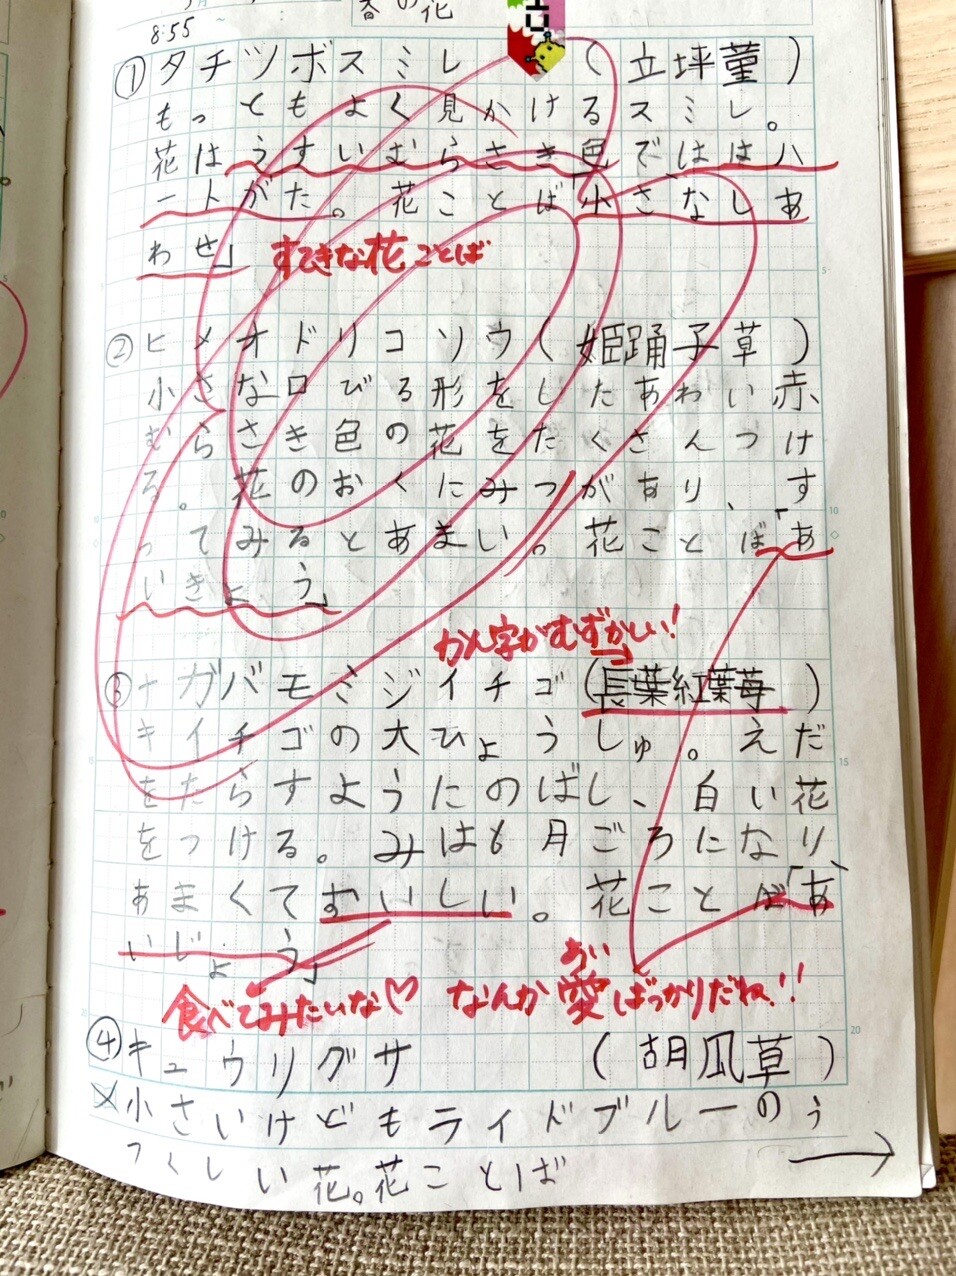 春の花
8:55
① タチツボスミレ (立坪菫)
もっともよく見かけるスミレ。
花はうすいむらさき色ではは ハ
ートがた。花ことば「小さなしあ
わせ」 すてきな花ことば
② ヒメオドリコソウ(姫踊子草)
小さな口びる形をしたあわい赤
むらさき色の花をたくさんつけ
る。花のおくにみつがあり、す
ってみるとあまい。花ことば「あ
いきょう」
かん字がむずかしい!
③ ナガバモミジイチゴ(長葉紅葉苺)
キイチゴの大ひょうしゅ。えだ
をたらすようにのばし、白い花
をつける。みは6月ごろになり
あまくておいしい。花ことば「あ
いじょう」
食べてみたいな♡ なんか愛ばっかりだね!!
あい
④ キュウリグサ (胡瓜草)
小さいけどもライドブルーのう
つくしい花。花ことば